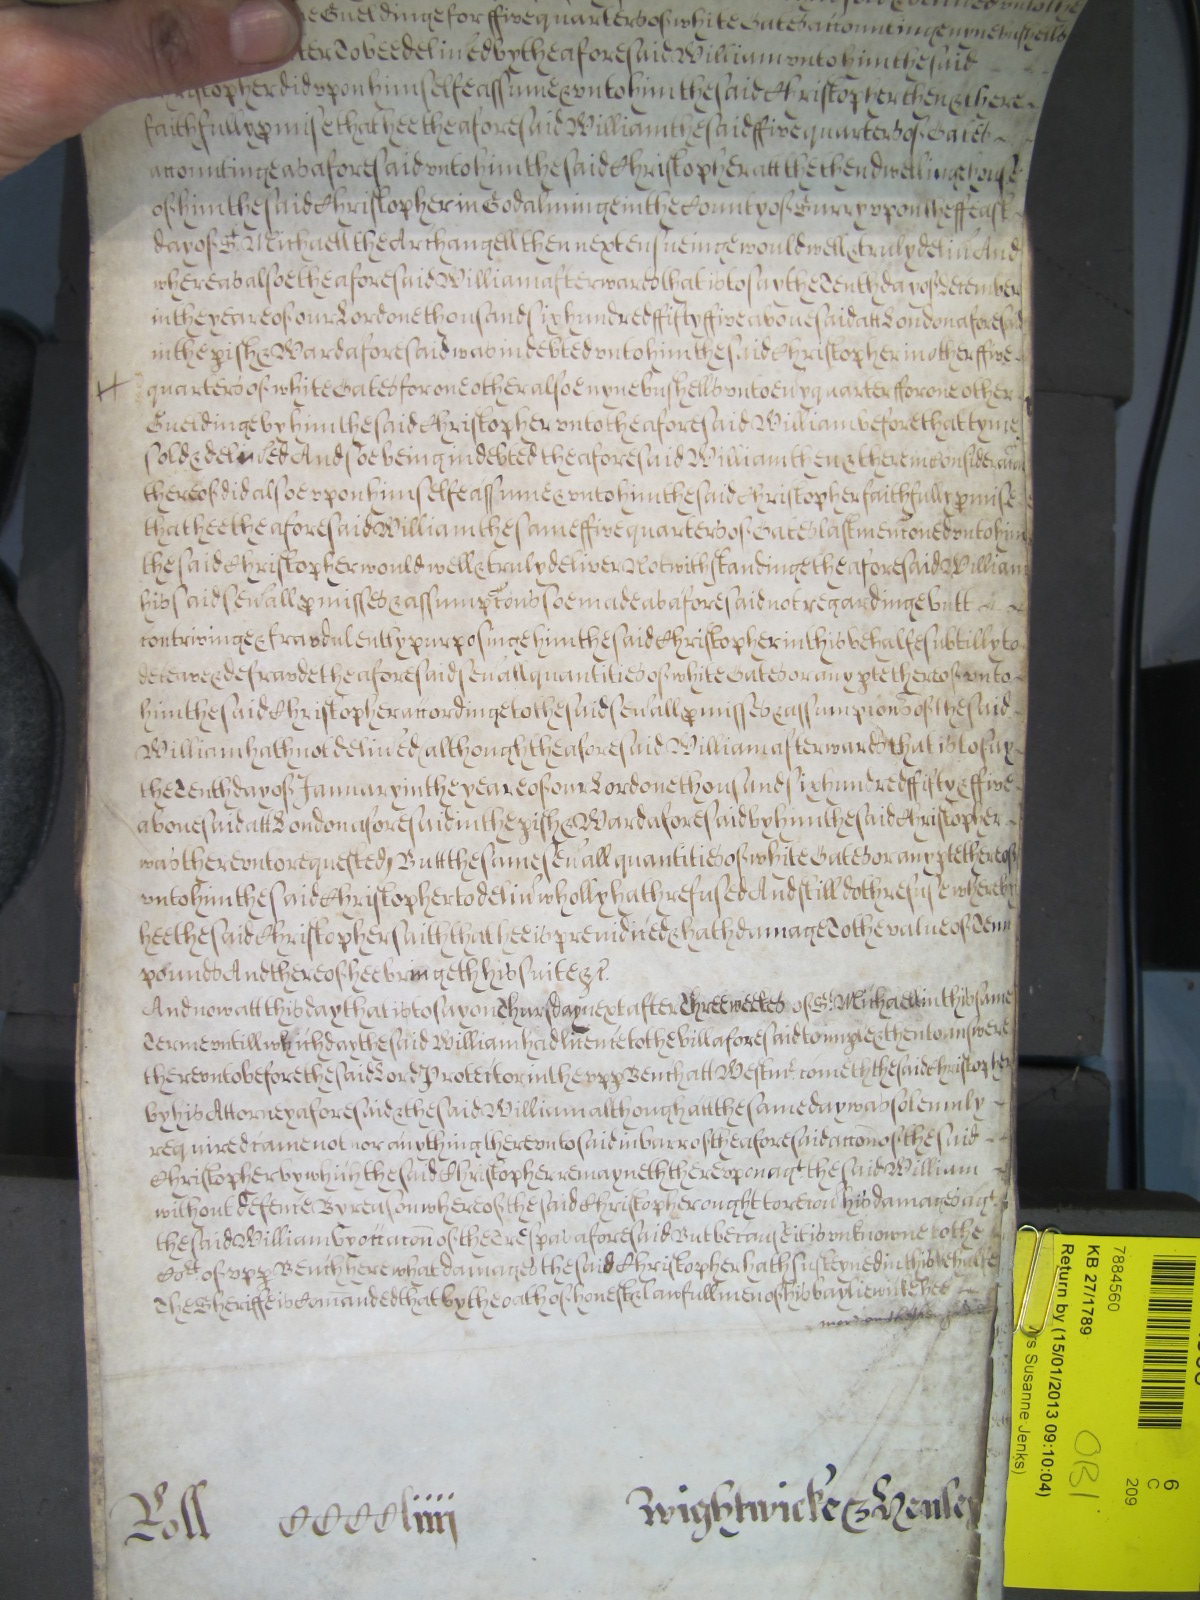 Gueldinge for ffive quarters of white Oates accountinge nyne bushells
To bee delived by the aforesaid William unto him the said
Christopher did upon himselfe assume & unto him the said Christopher then & there
faithfully pmise that hee the aforesaid William the said ffive quarters of Oates
accountinge as aforesaid unto him the said Christopher att the then dwellinge house
of him the said Christopher in Godalminge in the County of Surry upon the ffeast
day of St Michaell the Archangell then next ensueinge would well & truly deliv And
whereas alsoe the aforesaid William afterwards that is to say the Tenth day of December
in the yeare of our Lord one thousand six hundred ffifty ffive abovesaid att London aforesaid
in the pish & Ward aforesaid was indebted unto him the said Christopher in other ffive
quarters of white Oates for one other alsoe nyne bushells unto evy quarter ffor one other
Gueldinge by him the said Christopher unto the aforesaid William before that tyme
sold & delived And soe being indebted the aforesaid William then & there in consideracon
thereof did alsoe upon himselfe assume & unto him the said Christopher faithfully pmise
that hee the aforesaid William the same ffive quarters of Oates last menconed unto him
the said Christopher would well & truly deliver Notwithstandinge the aforesaid William
his said sevall pmisses & assumptons soe made as aforesaid not regardinge butt
contrivinge & fraudulently purposinge him the said Christopher in this behalfe subtilly to
deceave & defraude the aforesaid sevall quantities of white Oates or any pte thereof unto
him the said Christopher accordinge to the said sevall pmisses & assumpions of the said
William hath not delived although the aforesaid William afterwards that is to say
the Tenth day of January in the yeare of our Lord one thousand six hundred ffifty & ffive
abovesaid att London aforesaid in the pish & Ward aforesaid by him the said Christopher
was thereunto requested, Butt the same sevall quantities of white Oates or any pte thereof
unto him the said Christopher to deliv wholly hath refused And still doth refuse whereby
hee the said Christopher saith that hee is preiudiced & hath damage To the value of Tenn
pounds And thereof hee bringeth his suite &c.
And now att this day that is to say on Thursday next after Three weekes of St Michaell in this same
Terme untill which day the said William had licence to the bill aforesaid to imple & then to answere
thereunto before the said Lord Protector in the upp Bench att Westmr cometh the said Christopher
by his Attorney aforesaid & the said William although att the same day was solemnly
required came not nor any thing thereunto said in barr of the aforesaid accon of the said
Christopher by which the said Christopher remayneth thereupon agt the said William
without defence By reason whereof the said Christopher ought to recov his damages agt
the said William by occacon of the Trespas aforesaid But because it is unknowne to the
Cort of upp Bench here what damages the said Christopher hath susteyned in this behalfe
The Sheriffe is comanded that by the oath of honest & lawfull men of his bayliewicke hee
Roll CCCCliiii Wightwicke & Henley
7884560
KB 27/1789
Return by (15/01/2013 09:10:04)
Susanne Jenks)
OBI
6
C
209